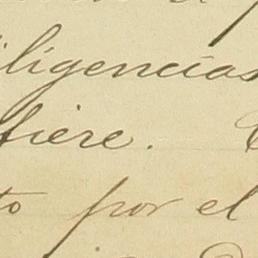 iligencias
fiere.
to por el